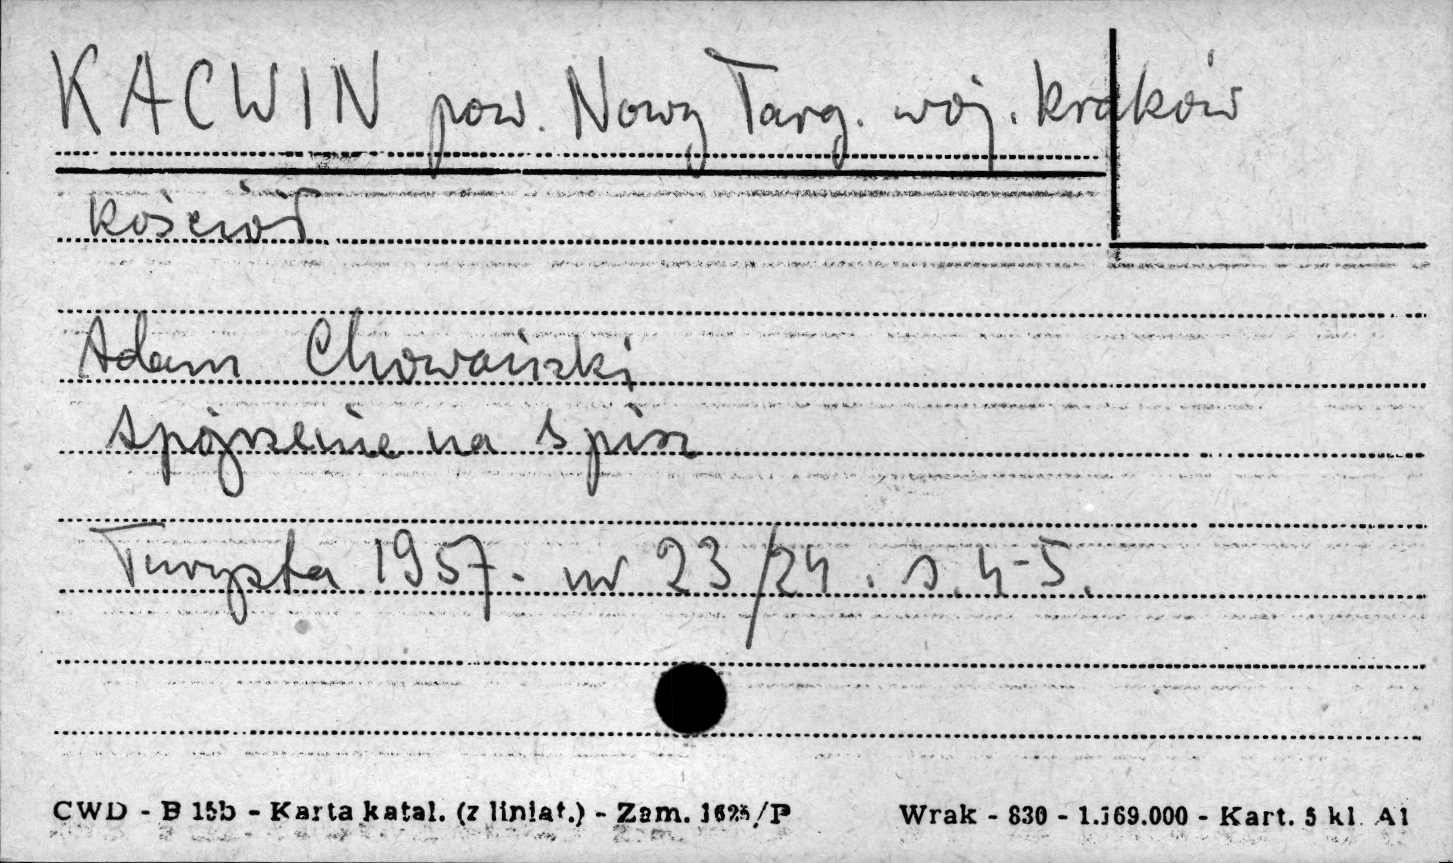 KACWIN pow. Nowy Targ. woj. kraków
kościół
Adam Chowański
Spójrzenie na Spisz
Turysta 1957. nr 23/24. s. 4-5.
CWD - B 15b - Karta katal. (z liniat.) - Zam. 1625/P Wrak - 830 - 1.169.000 - Kart. 5 kl. A1